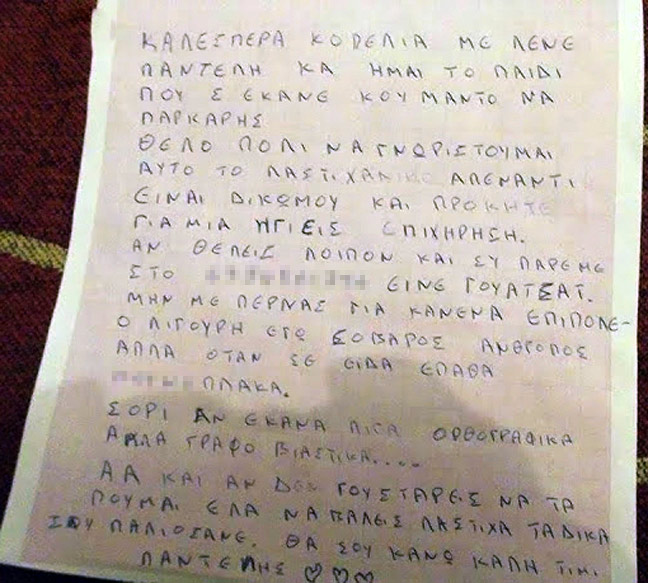 ΚΑΛΕΣΠΕΡΑ ΚΟΠΕΛΙΑ ΜΕ ΛΕΝΕ
ΠΑΝΤΕΛΗ ΚΑ ΗΜΑΙ ΤΟ ΠΑΙΔΙ
ΠΟΥ Σ ΕΚΑΝΕ ΚΟΥΜΑΝΤΟ ΝΑ
ΠΑΡΚΑΡΗΣ
ΘΕΛΟ ΠΟΛΙ ΝΑ ΓΝΩΡΙΣΤΟΥΜΑΙ
ΑΥΤΟ ΤΟ ΛΑΣΤΙΧΑΝΙΚΟ ΑΠΕΝΑΝΤΙ
ΕΙΝΑΙ ΔΙΚΩΜΟΥ ΚΑΙ ΠΡΟΚΗΤΕ
ΓΙΑ ΜΙΑ ΗΓΙΕΙΣ ΕΠΙΧΗΡΗΣΗ.
ΑΝ ΘΕΛΕΙΣ ΛΟΙΠΟΝ ΚΑΙ ΣΥ ΠΑΡΕ ΜΕ
ΣΤΟ ΕΙΝΕ ΓΟΥΑΤΣΑΤ.
ΜΗΝ ΜΕ ΠΕΡΝΑΣ ΓΙΑ ΚΑΝΕΝΑ ΕΠΙΠΟΛΕ-
Ο ΛΙΓΟΥΡΗ ΕΓΩ ΣΟΒΑΡΟΣ ΑΝΘΡΟΠΟΣ
ΑΛΛΑ ΟΤΑΝ ΣΕ ΕΙΔΑ ΕΠΑΘΑ
ΠΛΑΚΑ.
ΣΟΡΙ ΑΝ ΕΚΑΝΑ ΛΙΓΑ ΟΡΘΟΓΡΑΦΙΚΑ
ΑΛΛΑ ΓΡΑΦΟ ΒΙΑΣΤΙΚΑ.....
ΑΑ ΚΑΙ ΑΝ ΔΕΣ ΓΟΥΣΤΑΡΕΙΣ ΝΑ ΤΑ
ΠΟΥΜΑΙ ΕΛΑ ΝΑ ΒΑΛΕΙΣ ΛΑΣΤΙΧΑ ΤΑ ΔΙΚΑ
ΣΟΥ ΠΑΛΙΟΣΑΝΕ. ΘΑ ΣΟΥ ΚΑΝΩ ΚΑΛΗ ΤΙΜΙ.
ΠΑΝΤΕΛΗΣ ♡♡♡